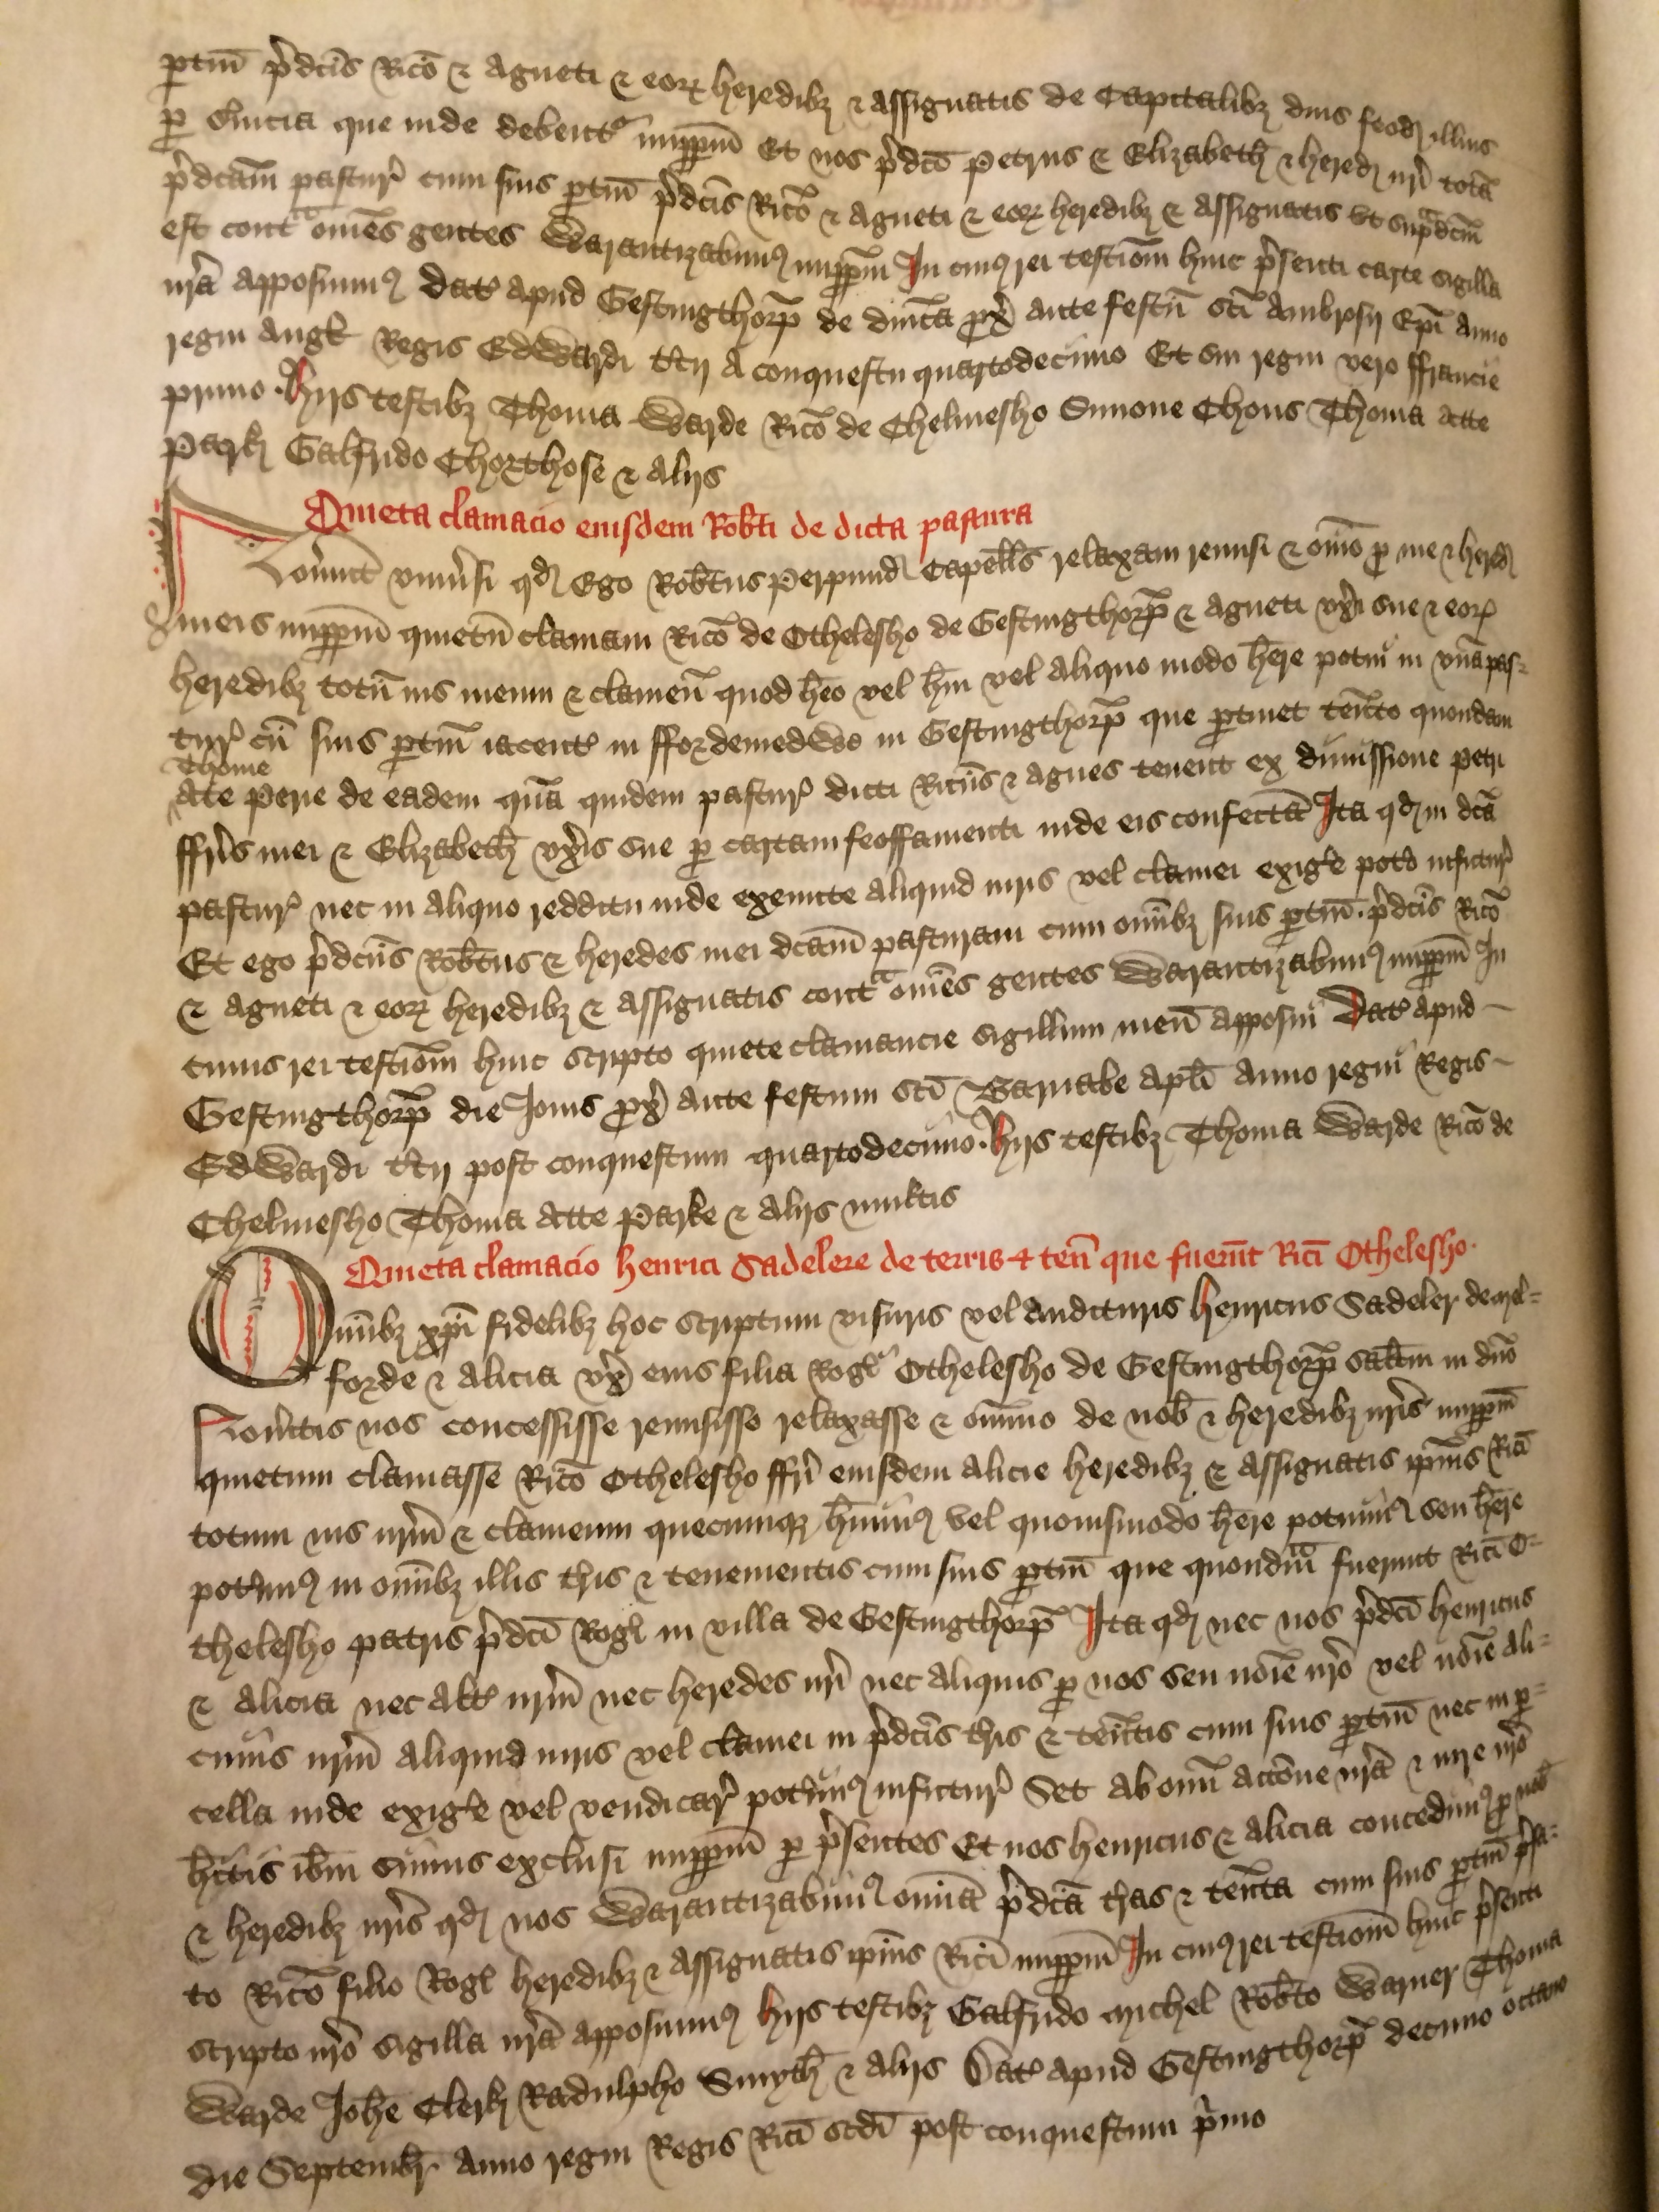 ptin̄ p̄dcīs Ricō ⁊ Agneti ⁊ eoꝝ heredibꝫ ⁊ assignatis de Capitalibꝫ dnis feodꝭ illius
ꝑ ẜuicia que inde debent᷑ imꝑpm̄ Et nos p̄dcō Petrus ⁊ Elizabetħ ⁊ heredꝭ nr̄i totā
p̄dcām pastur᷑ cum suis ꝑtin̄ p̄dcīs Ricō ⁊ Agneti ⁊ eoꝝ heredibꝫ ⁊ assignatis ut sup̄dcm̄
est contᵃ om̄es gentes Warantizabimꝰ imꝑpm̄ In cuiꝰ rei testiom̄ huic p̄senti carte sigilla
nr̄a apposuimꝰ Dat᷑ apud Gestingthorꝑ de dimc̄a ꝓx̄ ante festū sc̄i Ambrosij Ep̄i anno
regni Angł Regis Edwardi t̄cij A conquestu quartodecimo Et sui regni vero ffrancie
primo. Hijs testibꝫ Thoma Warde Ricō de Chelmesho Simone Chons Thoma Atte
Parkꝭ Galfrido Chorthose ⁊ alijs
Quieta clamacio eiusdem Rob̄ti de dicta pastura
Nou̔int vniu̔si qđ Ego Rob̄tus Perpundꝭ Capell̄s relaxam remisi ⁊ om̄o ꝓ me ⁊ heredꝭ
meis imꝑpm̄ quietū clamam Ricō de Othelesho de Gestingthorꝑ ⁊ Agneti vx̄i sue ⁊ eoꝝ
heredibꝫ totū ius meum ⁊ clameū quod h̄eo vel h̄ui vel aliquo modo h̄ere potui in vnā pas=
tur᷑ cū suis ꝑtin̄ iacent᷑ in ffordemedwo in Gestingthorꝑ que ꝑtinet ten̄to quondam
Thome
Atte Perie de eadem quā quidem pastur᷑ dicti Ricūs ⁊ Agnes tenent ex dimissione Petri
ffr̄is mei ⁊ Elizabetħ vx̄is sue ꝑ cartam feoffamenti inde eis confectā Ita qđ in dc̄a
pastur᷑ nec in aliquo redditu inde exeunte aliquid iuris vel clamei exig̔e pot̔o infutur᷑
Et ego p̄dcūs Rob̄tus ⁊ heredes mei dcām pasturam cum om̄ibꝫ suis ꝑtin̄. p̄dcīs Ricō
⁊ Agneti ⁊ eoꝝ heredibꝫ ⁊ assignatis contᵃ om̄es gentes Warantizabimꝰ imꝑpm̄ In
cuius rei testiom̄ huic scripto quiete clamancie sigillum meū apposui Dat᷑ apud
Gestingthorꝑ die Jouis ꝓx̄ ante festum sc̄i Barnabe apl̄i Anno regni Regis
Edwardi t̄cij post conquestum quartodecimo. Hijs testibꝫ Thoma Warde Ricō de
Chelmesho Thoma Atte Parke ⁊ alijs multis
Quieta clamacio henrici Sadelere de terris ⁊ ten̄ que fuerūt Ricī Othelesho.
Om̄ibꝫ xp̄i fidelibꝫ hoc scriptum visuris vel audituris Henricus Sadeler de Mel=
forde ⁊ Alicia vx̄ eius filia Rog̔i Othelesho de Gestingthorꝑ sał̄tm in dn̄o
Nou̔itis nos concessisse remisisse relaxasse ⁊ om̄ino de nob̄ ⁊ heredibꝫ nr̄is imꝑpm̄
quietum clamasse Ricō Othelesho ffr̄i eiusdem Alicie heredibꝫ ⁊ assignatis ip̄ius Ricī
totum ius nr̄m ⁊ clameum quecumqꝫ h̄uimꝰ vel quouismodo h̄ere potuimꝰ seu h̄ere
pot̔imꝰ in om̄ibꝫ illis t̄ris ⁊ tenementis cum suis ꝑtin̄ que quondā fuerunt Ricī O=
thelesho patris p̄dcī Rogī in villa de Gestingthorꝑ Ita qđ nec nos p̄dcī Henricus
⁊ Alicia nec alt᷑ nr̄m nec heredes nr̄i nec aliquis ꝑ nos seu no̅ie nr̄o vel no̅ie ali=
cuius nr̄m aliquid iuris vel clamei in p̄dcīs t̄ris ⁊ ten̄tis cum suis ꝑtin̄ nec in ꝑ=
cella inde exig̔e vel vendicar᷑ pot̔imꝰ infutur᷑ Set ab om̄i accōne nr̄a ⁊ iure nr̄o
h̄itis ib̄m simus exclusi imꝑpm̄ ꝑ p̄sentes Et nos Henricus ⁊ Alicia concedimꝰ ꝓ nob̄
⁊ heredibꝫ nr̄is qđ nos Warantizabimꝰ om̄ia p̄dcā t̄ras ⁊ ten̄ta cum suis ꝑtin̄ p̄fa=
to Ricō filio Rogī heredibꝫ ⁊ assignatis ip̄ius Ricī imꝑpm̄ In cuiꝰ rei testiom̄ huic p̄senti
scripto nr̄o sigilla nr̄a apposuimꝰ Hijs testibꝫ Galfrido Michel Rob̄to Warner Thoma
Warde Joħe Clerkꝭ Radulpho Smytħ ⁊ alijs Dat᷑ apud Gestingthorꝑ decimo octauo
die Septembr̄ Anno regni Regis Ricī sc̄di post conquestum p̄mo